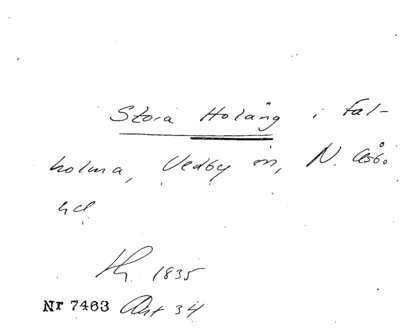 Stora Holäng i Fal-
holma, Vedby sn, N. Åsbo
hd
Th. 1835
Nr 7463 Akt 34